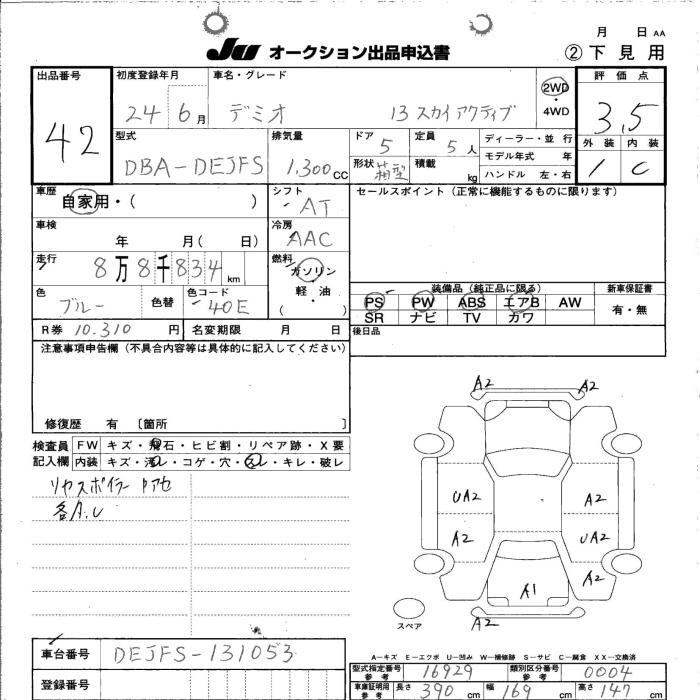 月 日 AA
JU オークション出品申込書 ②下見用
出品番号 初度登録年月 車名・グレード 評価点
42 24 6月 デミオ 13 スカイアクティブ 2WD・4WD 3.5
型式 排気量 ドア 定員 ディーラー・並行 外装 内装
DBA-DEJFS 1,300cc 5 5人 モデル年式 年 1 C
形状 箱型 積載 kg ハンドル 左・右
車歴 自家用・( ) シフト AT セールスポイント(正常に機能するものに限ります)
車検 年 月( 日) 冷房 AAC
走行 8万8千834km 燃料 ガソリン・軽油 ( )
装備品(純正品に限る) 新車保証書
色 ブルー 色替 色コード 40E
PS PW ABS エアB AW 有・無
SR ナビ TV カワ
R券 10.310円 名変期限 月 日 後日品
注意事項申告欄(不具合内容等は具体的に記入してください)
修復歴 有 〔箇所 〕
検査員 FW キズ・飛石・ヒビ割・リペア跡・X要
記入欄 内装 キズ・汚レ・コゲ・穴・スレ・キレ・破レ
リヤスポイラー
各A.U
A2 A2
UA2 A2
A2 UA2
A2
A1
A2
スペア
A-キズ E-エクボ U-凹み W-補修跡 S-サビ C-腐食 XX-交換済
車台番号 DEJFS-131053
型式指定番号 参考 16929 類別区分番号 参考 0004
登録番号
車庫証明用 参考 長さ 390cm 幅 169cm 高さ 147cm